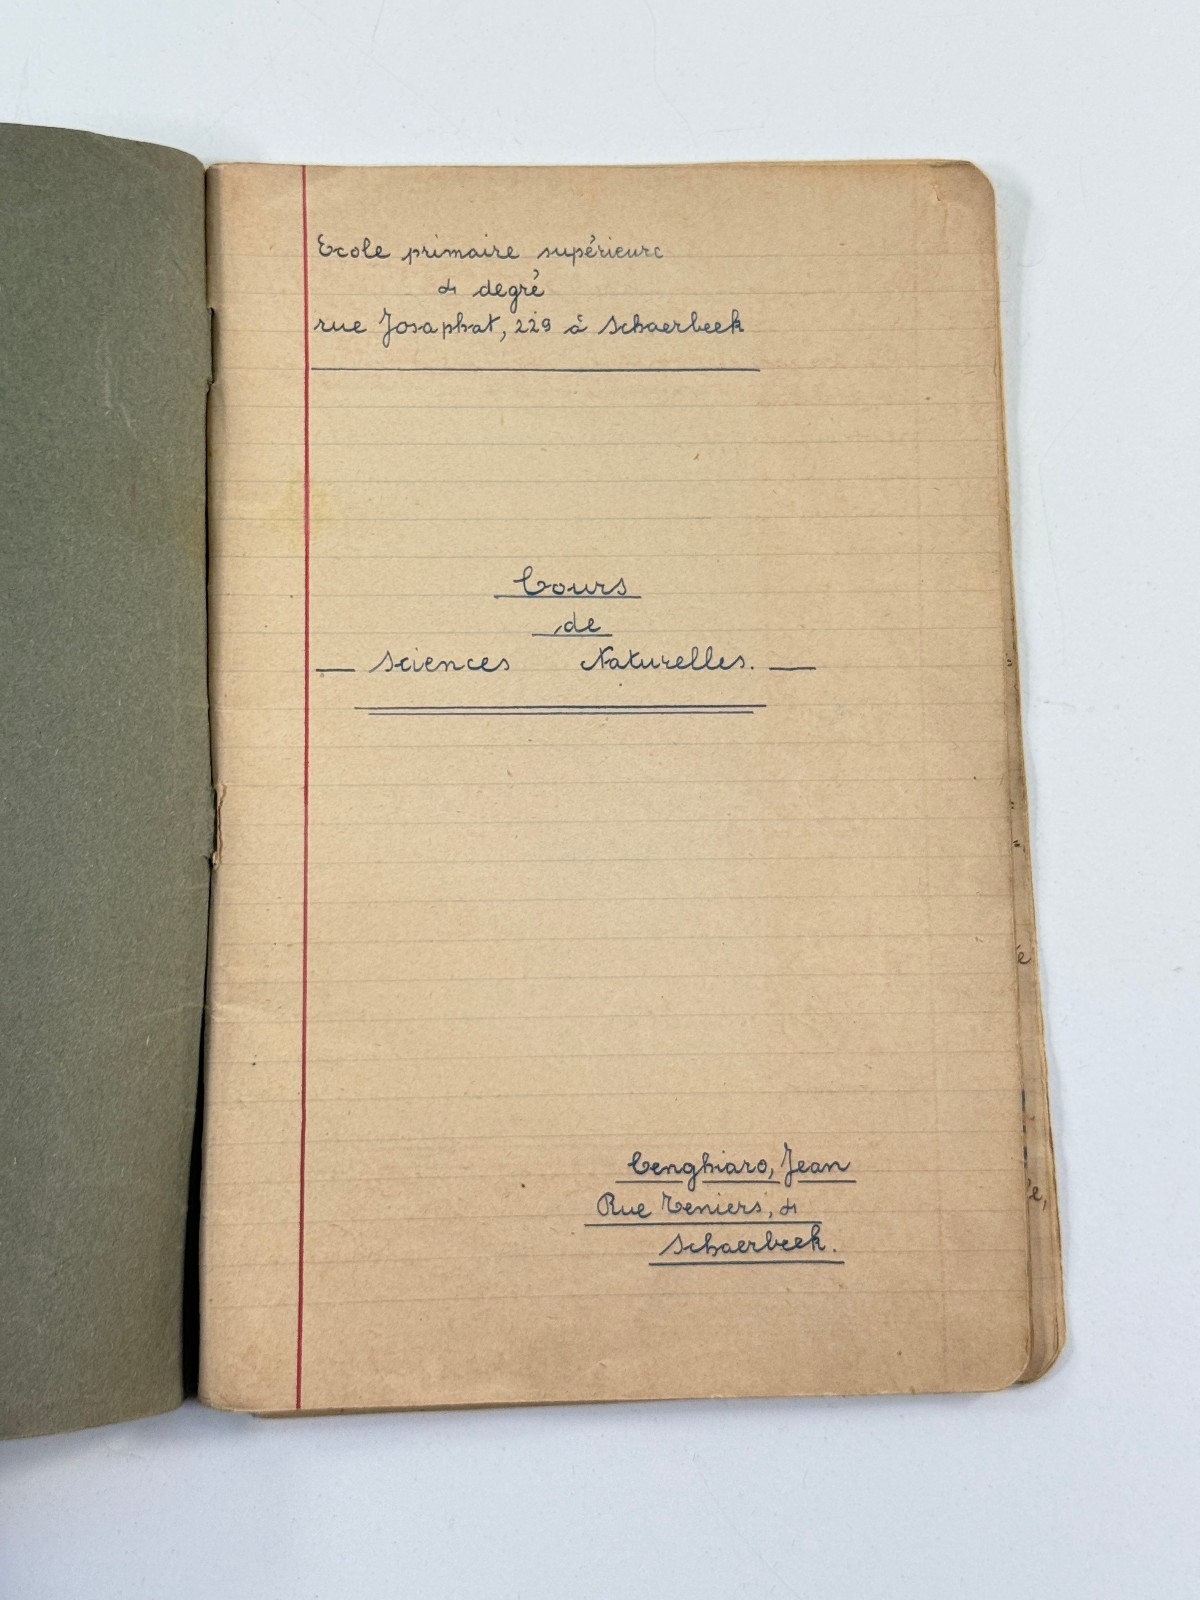 Ecole primaire supérieure
4 degré
rue Josaphat, 229 à Schaerbeek
Cours
de
— Sciences Naturelles. —
Cenghiaro, Jean
Rue Teniers, 4
Schaerbeek.